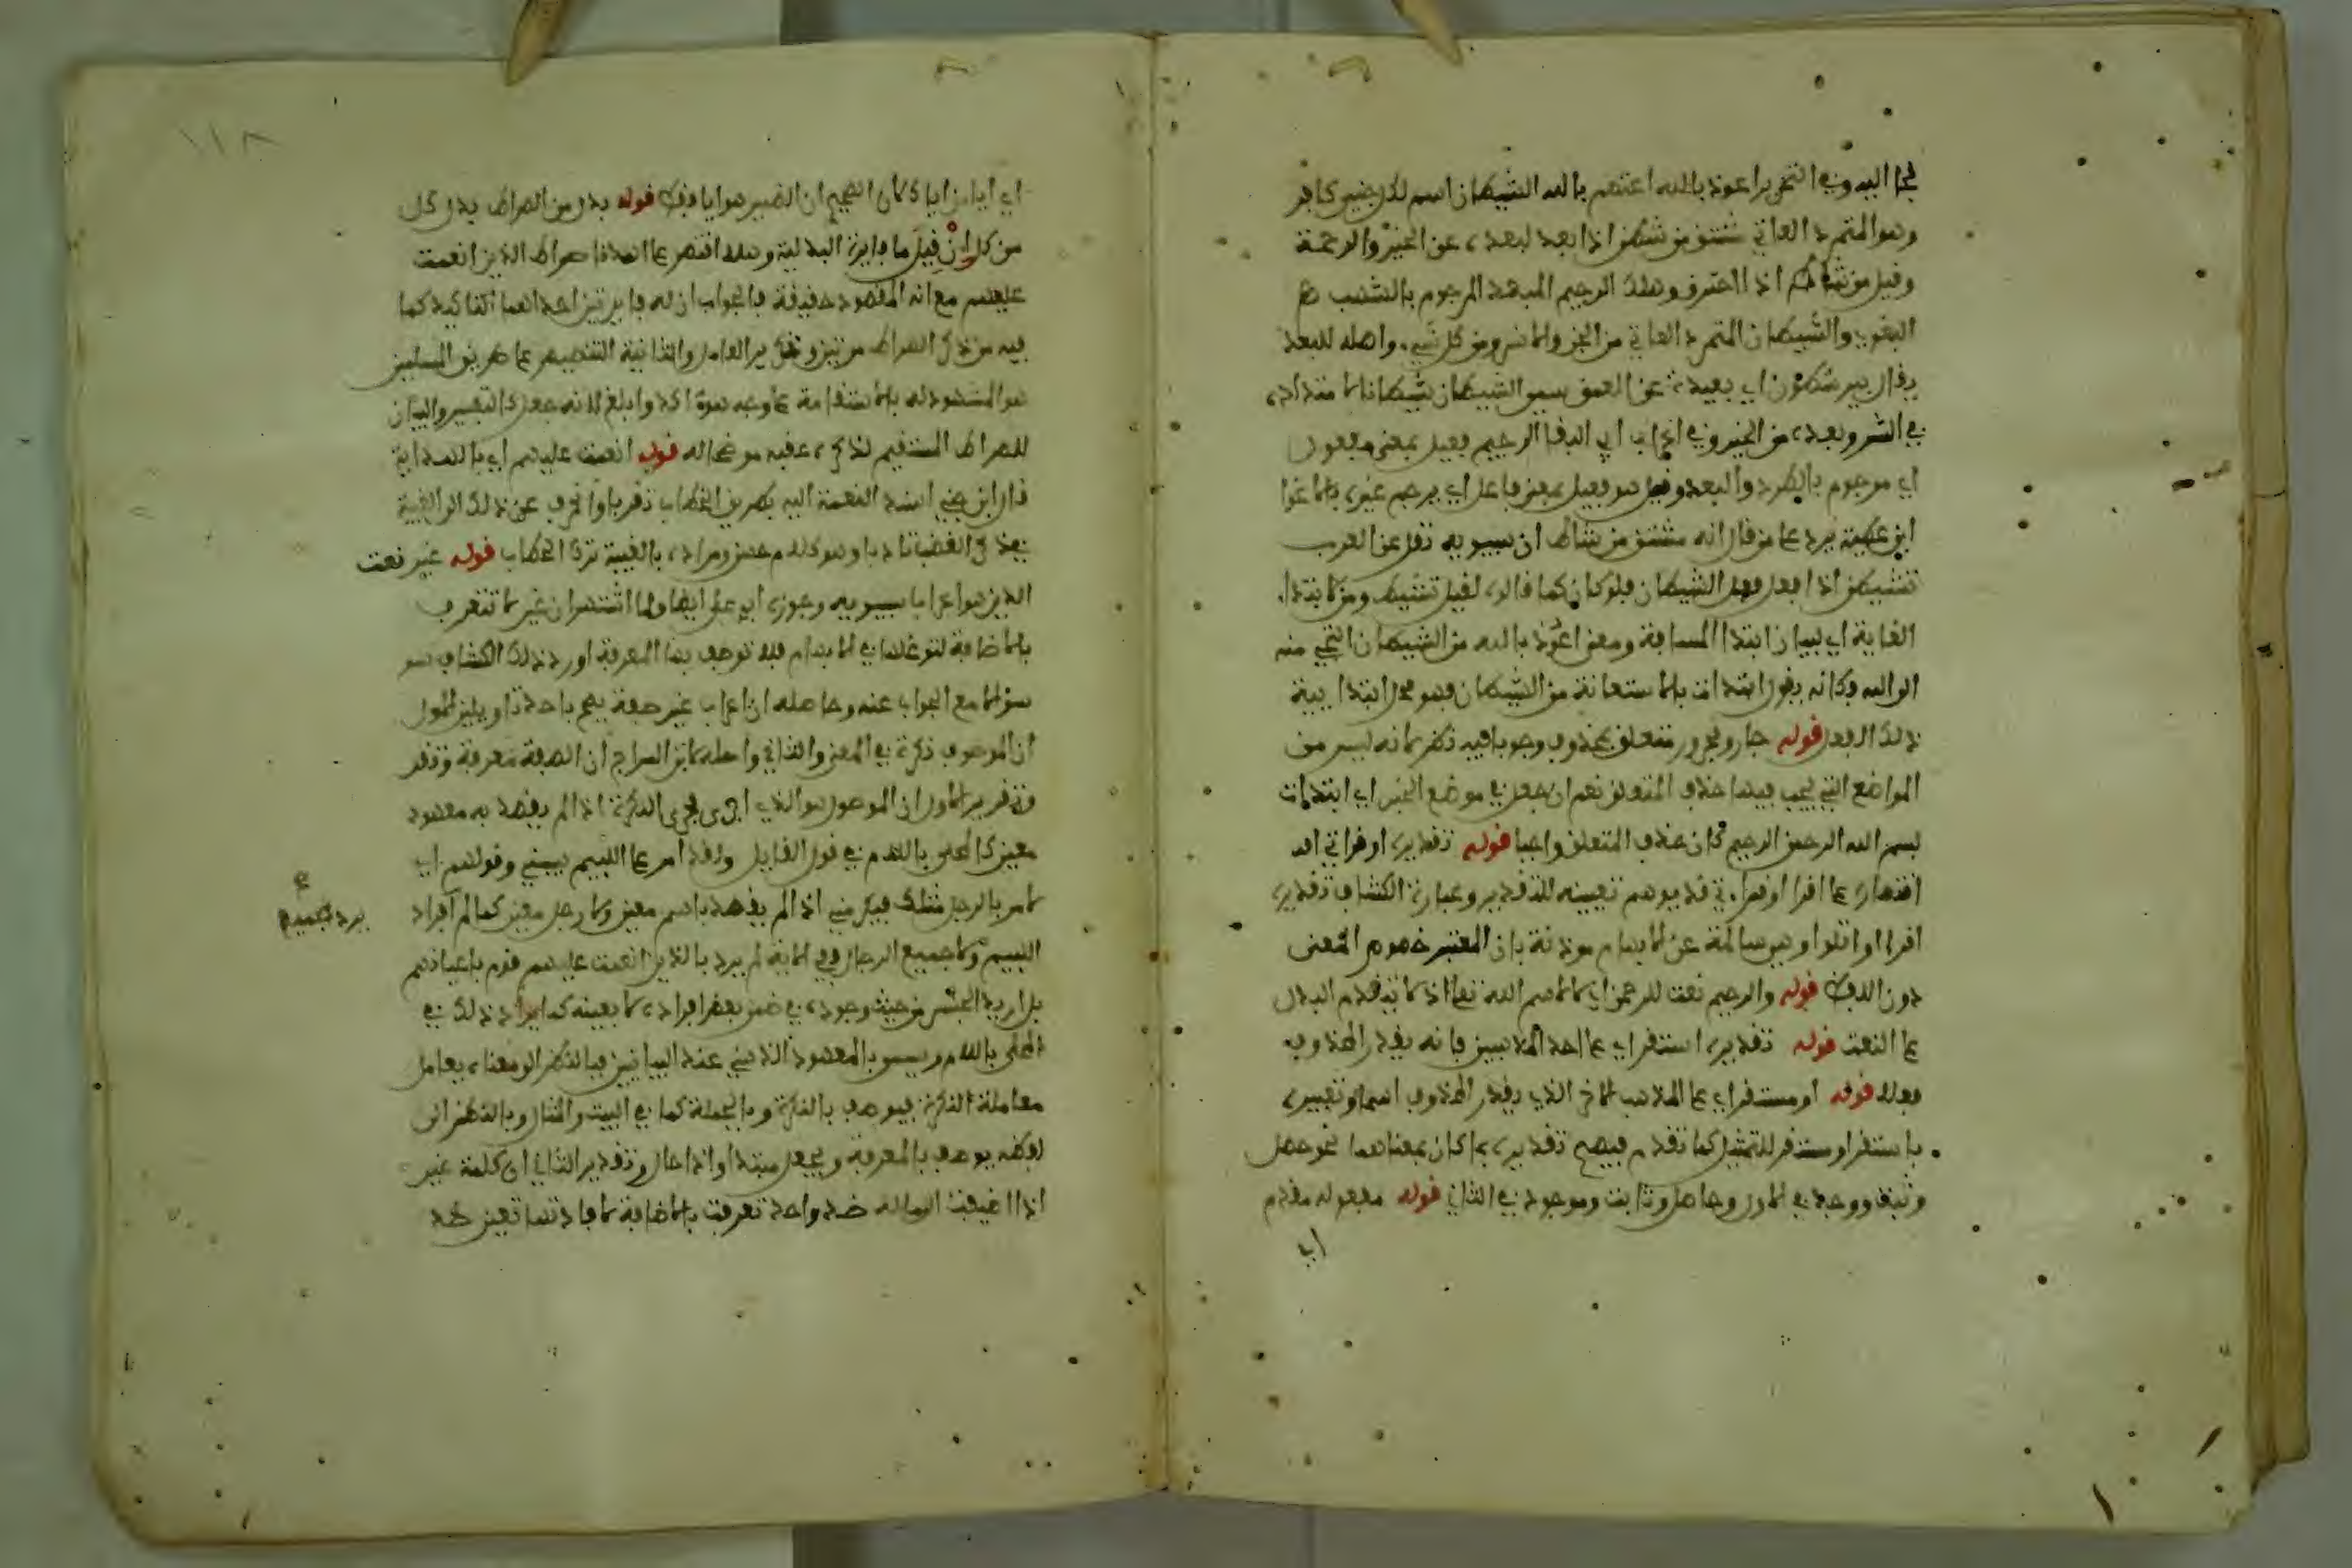 لجا اليه وفي التحرير اعوذ بالله اعتصم بالله الشيطان اسم لكل جني كافر
وهو المتمرد العاتي مشتق من شطن اذا بعد لبعده عن الخير والرحمة
وقيل من شاط اذا احترق وهلك الرجيم المبعد المرجوم بالشهب
البغوي والشيطان المتمرد العاتي من الجن والانس ومن كل شيء واصله للبعد
يقال بير شطون اي بعيدة عن العمق سمى الشيطان شيطانا لامتداده
في الشر وبعده من الخير وفي اعراب ابي البقا الرجيم فعيل بمعنى مفعول
اي مرجوم بالطرد والبعد وقيل هو فعيل بمعنى فاعل اي يرجم غيره بالاغوا
ابن عطية يرد على من قال انه مشتق من شاط ان سيبويه نقل عن العرب
تشيطن اذا فعل فعل الشيطان فلو كان كما قالوه لقيل تشيط ومن لابتداء
الغاية اي لبيان ابتدا المسافة ومعنى اعوذ بالله من الشيطان التجي منه
الى الله وكانه يقول ابتدات بالاستعانة من الشيطان فهو محل ابتدايية
ذلك الفعل قوله جار ومجرور متعلق بمحذوف وجوبا فيه نظر لانه ليس من
المواضع التي يجب فيها حذف المتعلق نعم ان جعل في موضع الخبر اي ابتدات
بسم الله الرحمن الرحيم كان حذف المتعلق واجبا قوله تقديره اوقراتي اه
اقتصاره على اقرا او قراءتي قد يوهم تعيينه للتقدير وعبارة الكشاف تقديره
اقرا او اتلوا وهي سالمة عن الابهام موذنة بان المعتبر خصوص المعنى
دون اللفظ قوله والرحيم نعت للرحمن اي لا لاسم الله تعالى اذ لا يتقدم البدل
على النعت قوله تقديره استقر اي على احد المذهبين فانه يقدر المحذوف
فعلا قوله او مستقر اي على المذهب الاخر الذي يقدر المحذوف اسما وتعبيره
باستقر او مستقر للتمثيل كما تقدم فيصح تقديره بما كان بمعناهما نحو حصل
وثبت ووجد في الاول وحاصل وثابت وموجود في الثاني قوله مفعوله مقدم
اي
١١٨
اي ايا من اياك لان الصحيح ان الضمير هو ايا فقط قوله بدل من الصراط بدل كل
من كل ان قيل ما فايدة البدلية وهلا اقتصر على اهدنا صراط الذين انعمت
عليهم مع انه المقصود حقيقة فالجواب ان له فايدتين احداهما التاكيد لما
فيه من ذكر الصراط مرتين وتكرير العامل والثانية التنصيص على طريق المسلمين
هو المشهود له بالاستقامة على وجه هو اكد وابلغ لانه جعل كالتفسير والبيان
للصراط المستقيم لذكره عقبه موضحا له قوله انعمت عليهم اي بالهداية
قال ابن جني اسند النعمة اليه بطريق الخطاب تقربا وانحرف عن ذلك الى الغيبة
بعد ذكر الغضب تادبا وهو كلام حسن ومراده بالغيبة ترك الخطاب قوله غير نعت
الذين هو اعراب سيبويه وجوزه ابو علي ايضا ولما اشتهر ان غير لا تتعرف
بالاضافة لتوغلها في الابهام فلا توصف بها المعرفة اورد ذلك الكشاف
سؤالا مع الجواب عنه وحاصله ان اعراب غير صفة يصح باحد تاويلين الاول
ان الموصوف نكرة في المعنى والثاني واصله لابن السراج ان الصفة معرفة
وتقرير الاول ان الموصول هو الذي اجرى مجرى النكرة اذ الم يقصد به معهود
معين كالمحلى باللام في قول القايل ولقد امر على اللييم يسبني وقولهم اني
لامر بالرجل مثلك فيكرمني اذ الم يقصد باسم معين ولا رجل معين كما لم
يرد بجميع
اللييم ولا جميع الرجال وفي الاية لم يرد بالذين انعمت عليهم قوم باعيانهم
بل اريد الجنس من حيث وجوده في ضمن بعض افراده لا بعينه كما يراد ذلك في
المحلى باللام ويسمى بالمعهود الذهني عند البيانيين فبالنظر الى معناه يعامل
معاملة النكرة فيوصف بالنكرة وبالجملة كما في البيت والمثال وبالنظر الى
لفظه يوصف بالمعرفة ويجعل مبتدا وذا حال وتقدير الثاني ان كلمة غير
اذا اضيفت الى ما له ضد واحد تعرفت بالاضافة لافادتها تعين ضد